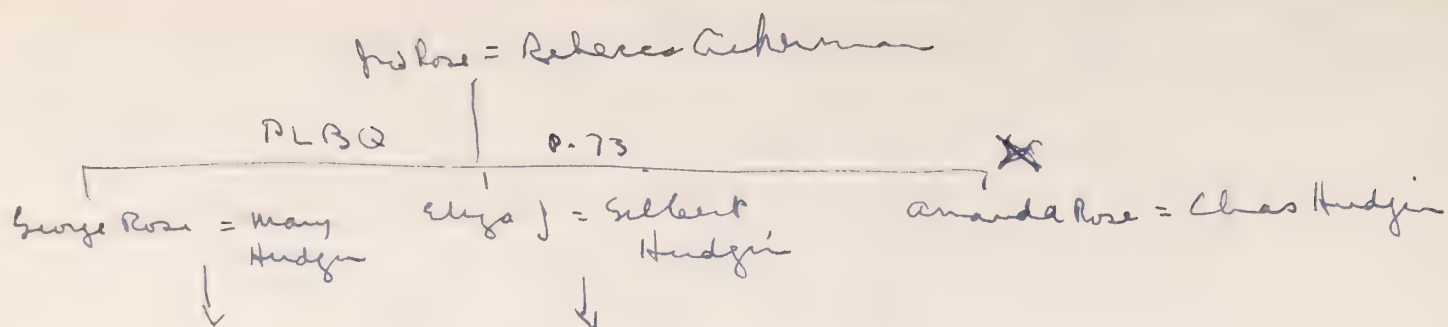 Jno Rose = Rebecca Ackerman
PLBQ P. 73
George Rose = Mary Hudgin
Eliza J = Gilbert Hudgin
Amanda Rose = Chas Hudgin